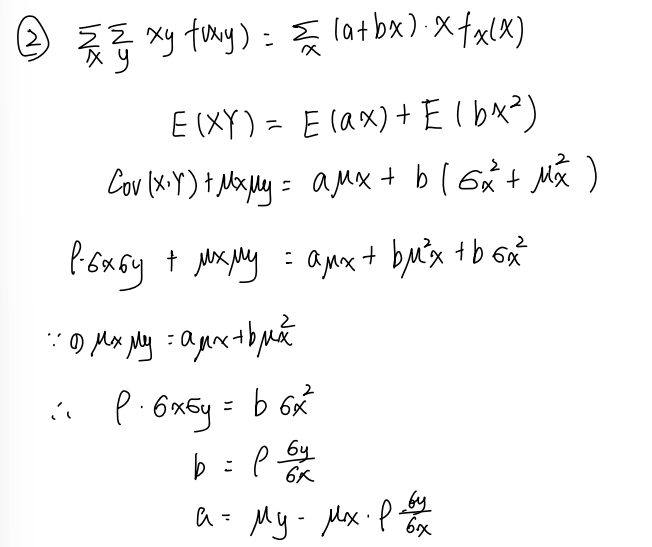 ② ∑x ∑y xy f(x,y) = ∑x (a+bx)·x fx(x)
E(XY) = E(ax) + E(bx²)
Cov(X,Y) + μxμy = aμx + b(σx² + μx²)
ρ·σxσy + μxμy = aμx + bμ²x + bσx²
∵ ① μxμy = aμx + bμx²
∴ ρ·σxσy = bσx²
b = ρ σy/σx
a = μy - μx·ρ σy/σx